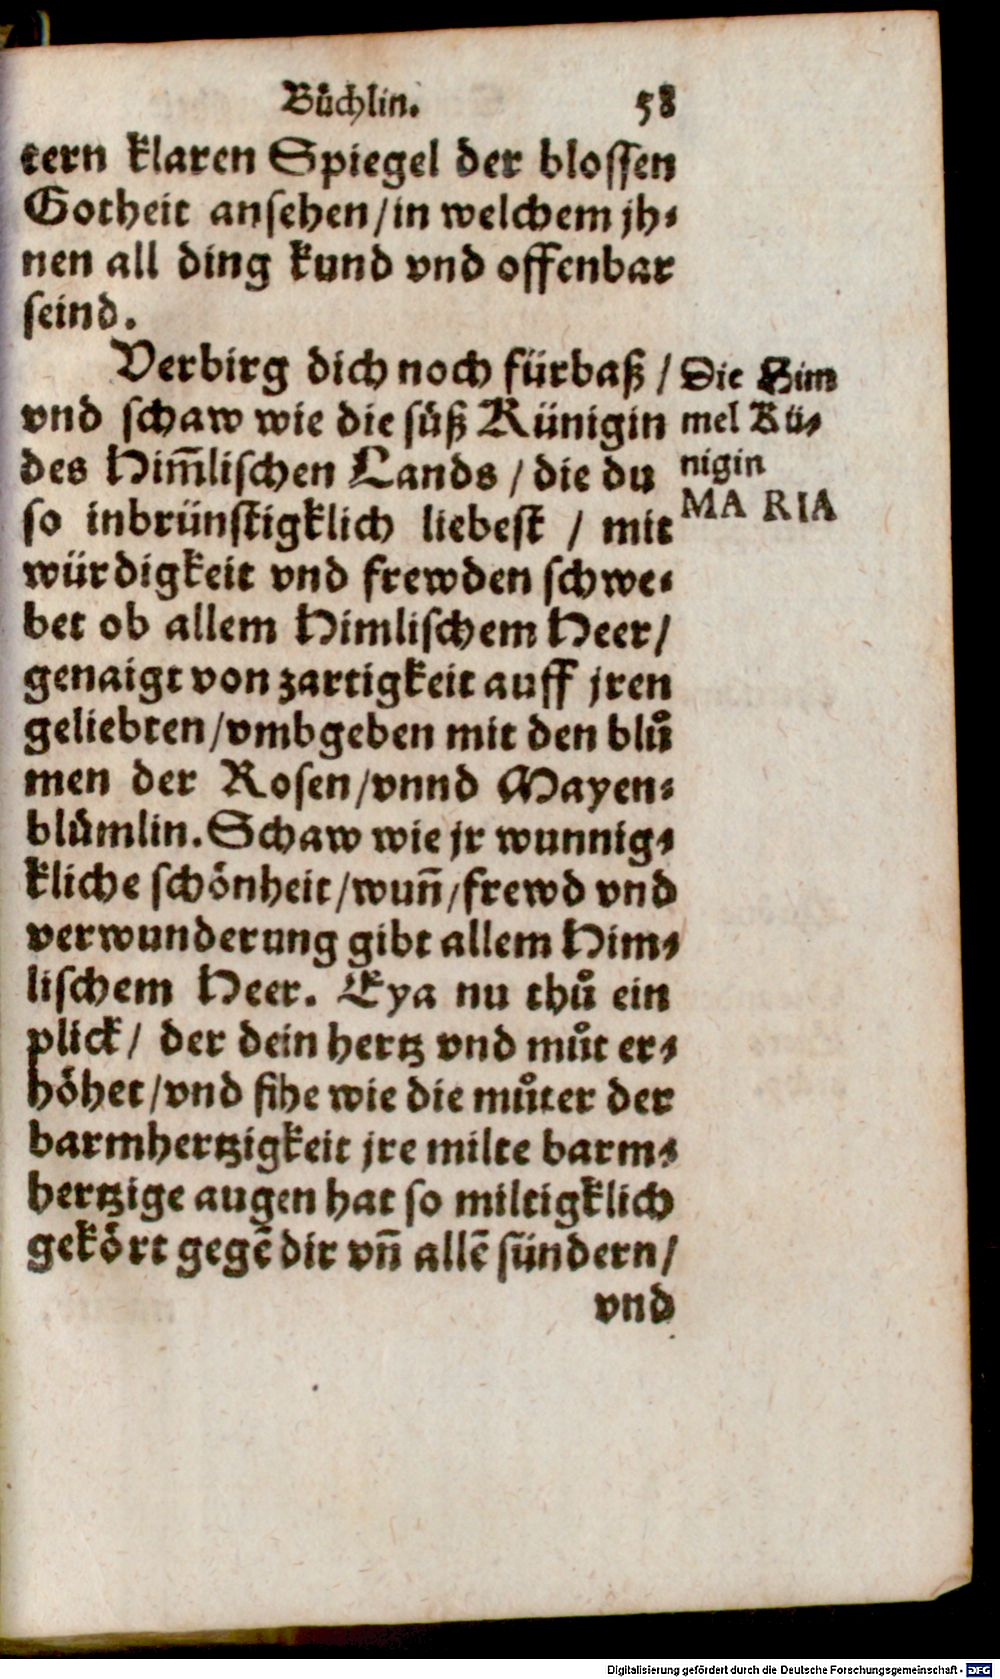 Bůchlin. 58
tern klaren Spiegel der blossen
Gotheit ansehen/in welchem jh-
nen all ding kund vnd offenbar
seind.
Verbirg dich noch fürbaß /
vnd schaw wie die süß Künigin
des Him̃lischen Lands / die du
so inbrünstigklich liebest / mit
würdigkeit vnd frewden schwe-
bet ob allem Himlischem Heer/
genaigt von zartigkeit auff jren
geliebten/vmbgeben mit den blů
men der Rosen/vnnd Mayen-
blůmlin. Schaw wie jr wunnig-
kliche schönheit/wuñ/frewd vnd
verwunderung gibt allem Him-
lischem Heer. Eya nu thů ein
plick/ der dein hertz vnd můt er-
höhet/vnd sihe wie die můter der
barmhertzigkeit jre milte barm-
hertzige augen hat so miltigklich
gekört gegē dir vñ allē sündern/
vnd
Die Him
mel Kü-
nigin
MARIA
Digitalisierung gefördert durch die Deutsche Forschungsgemeinschaft - DFG